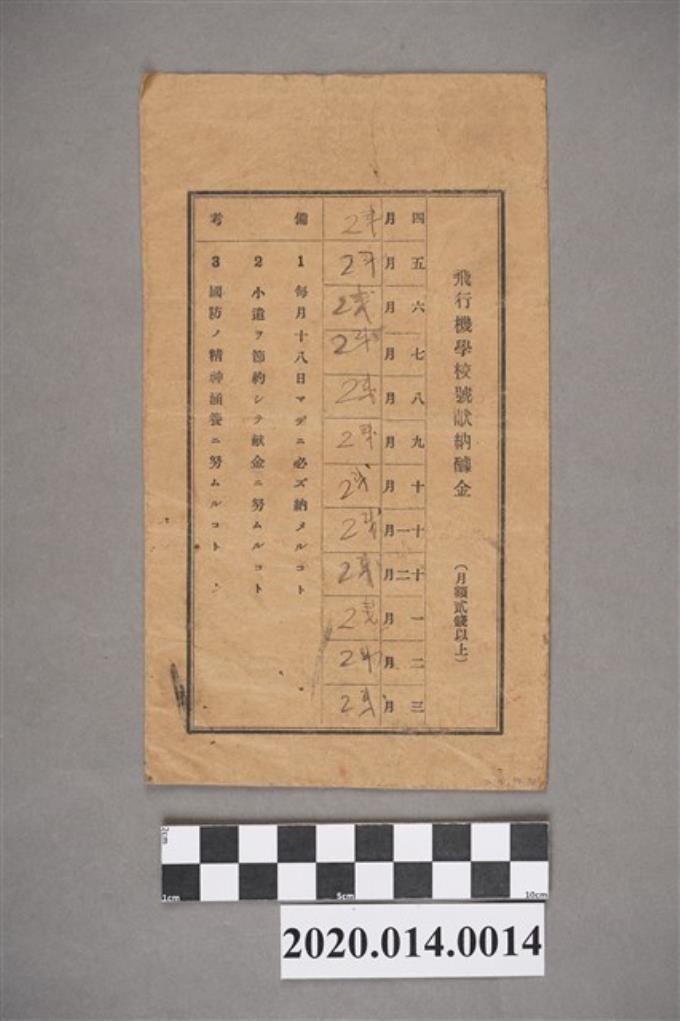 飛行機學校號献納醵金
(月額貳錢以上)
四月 2戋
五月 2戋
六月 2戋
七月 2戋
八月 2戋
九月 2戋
十月 2戋
十一月 2戋
十二月 2戋
一月 2戋
二月 2戋
三月 2戋
備考
1 毎月十八日マデニ必ズ納メルコト
2 小遣ヲ節約シテ献金ニ努ムルコト
3 國防ノ精神涵養ニ努ムルコト
2cm
1cm 5cm 10cm
2020.014.0014